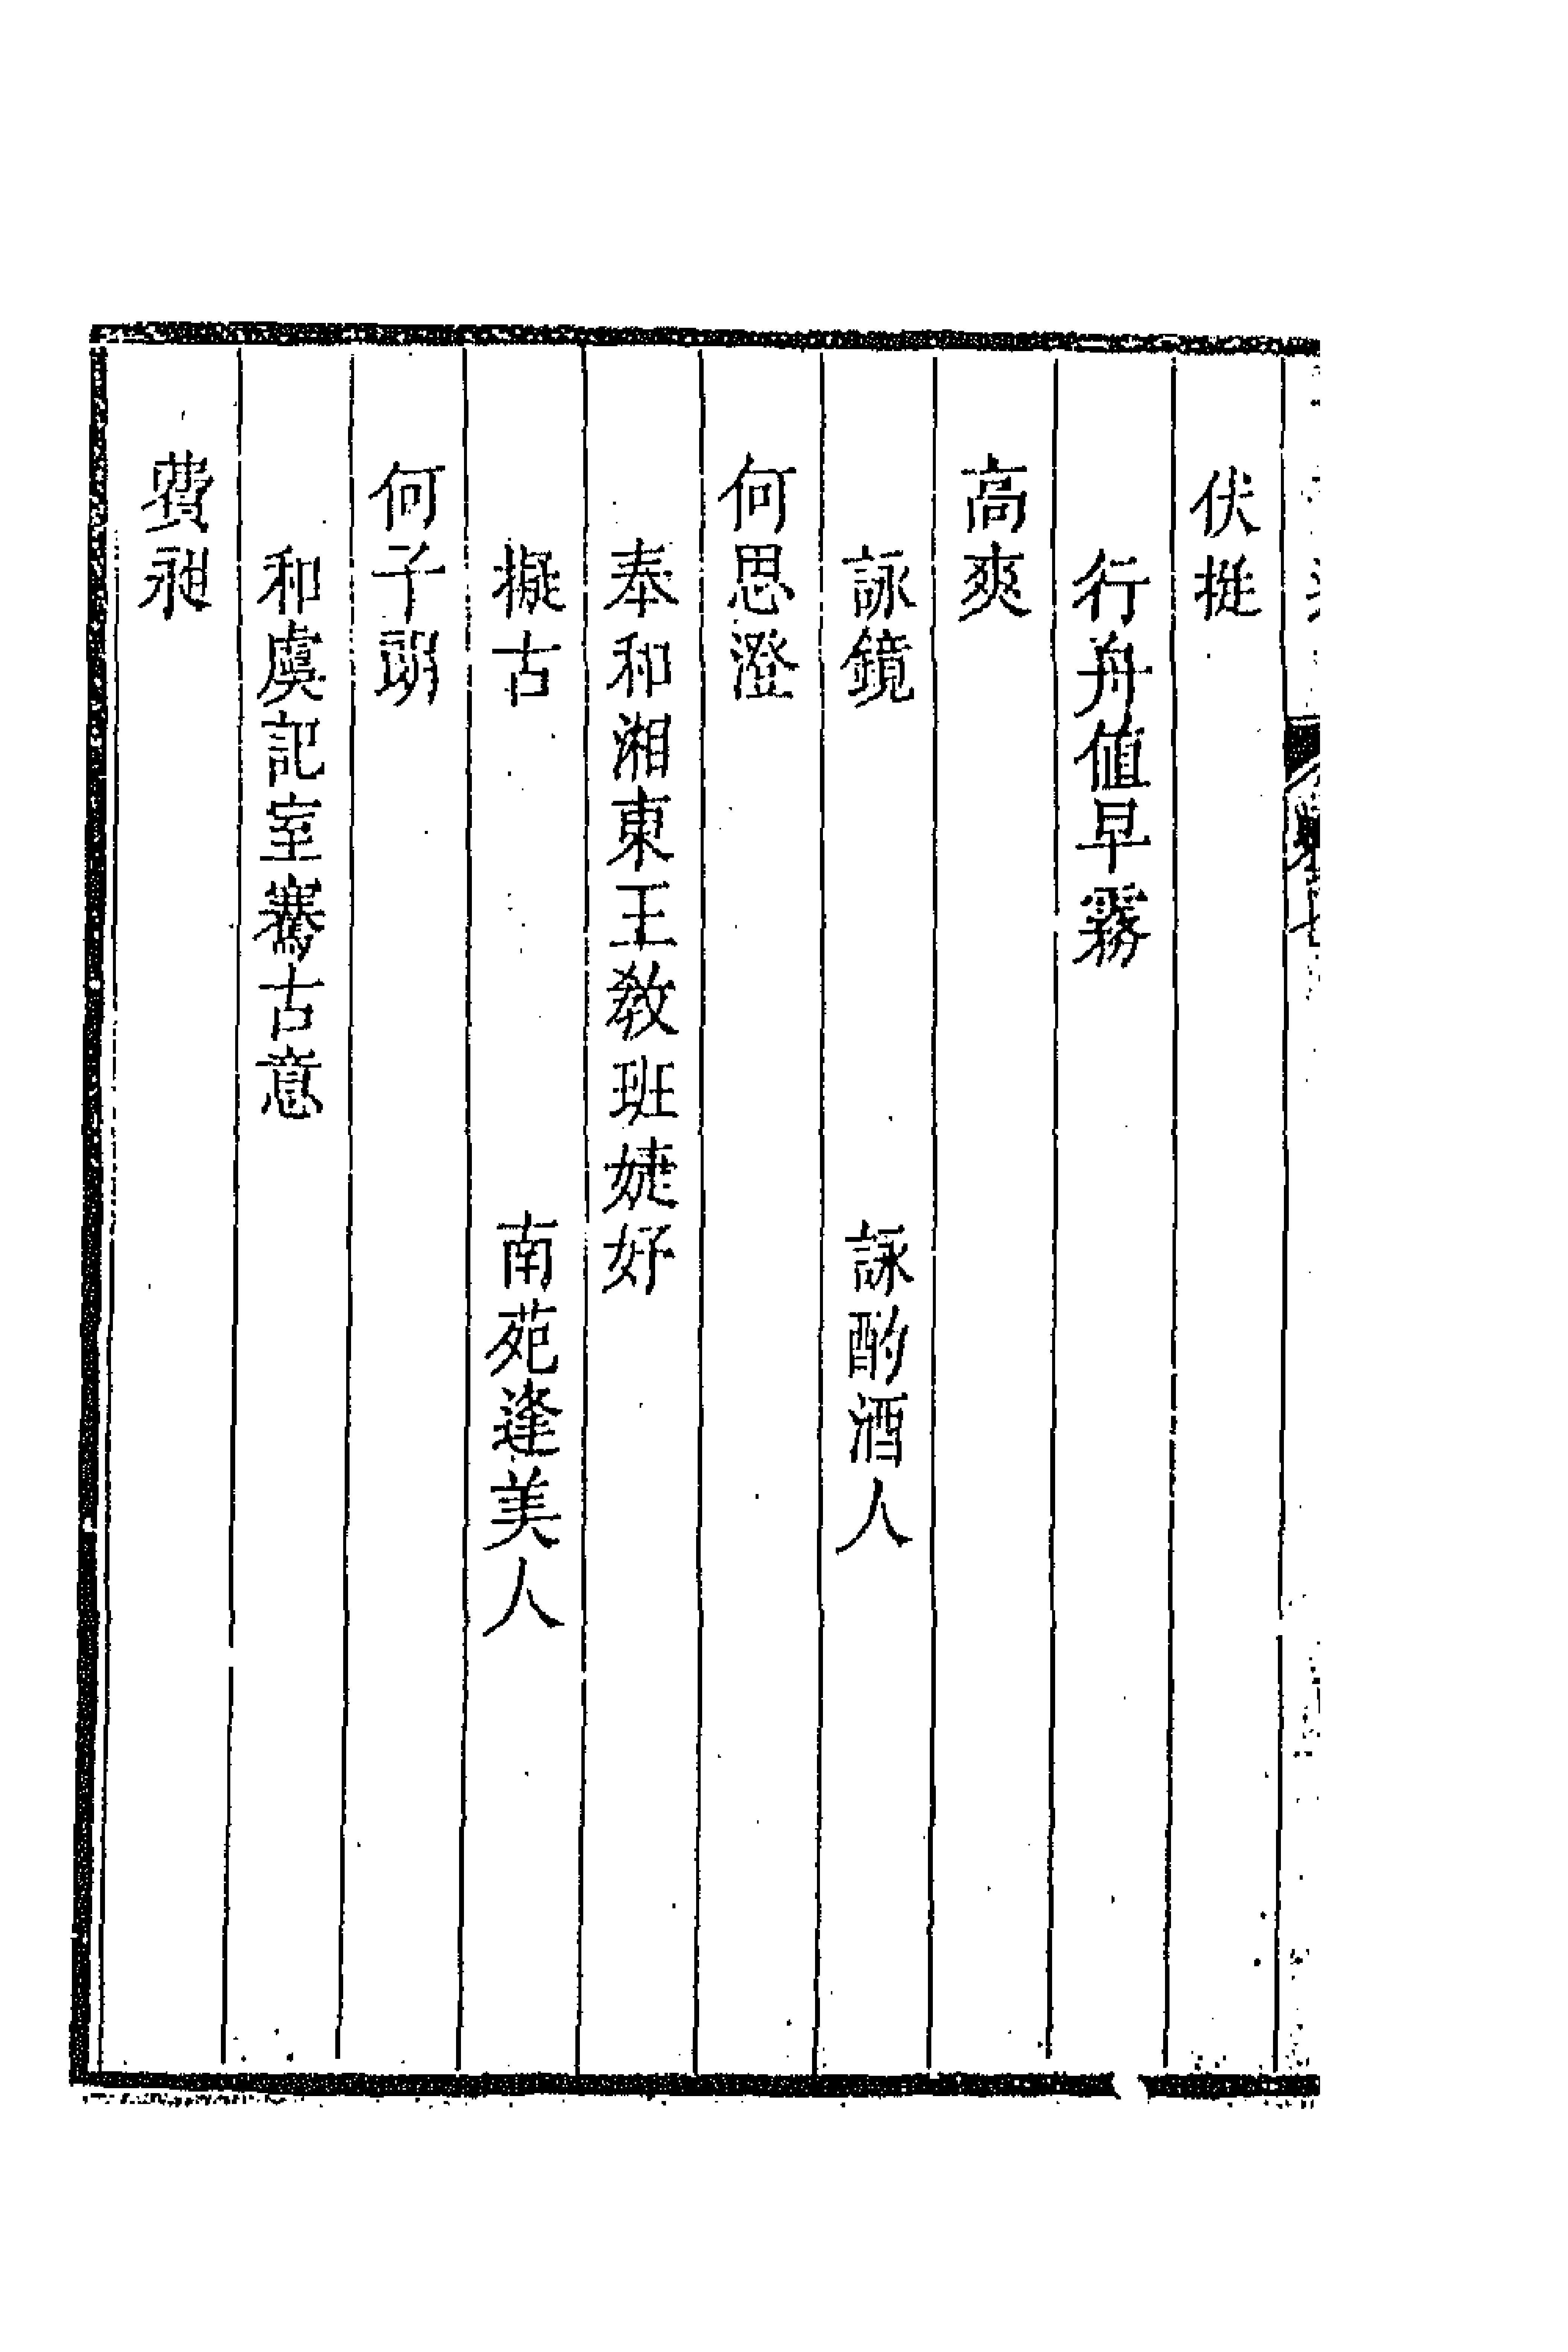 伏挺
行舟值早霧
高爽
詠鏡 詠酌酒人
何思澄
奉和湘東王教班婕妤
擬古 南苑逢美人
何子朗
和虞記室騫古意
費昶